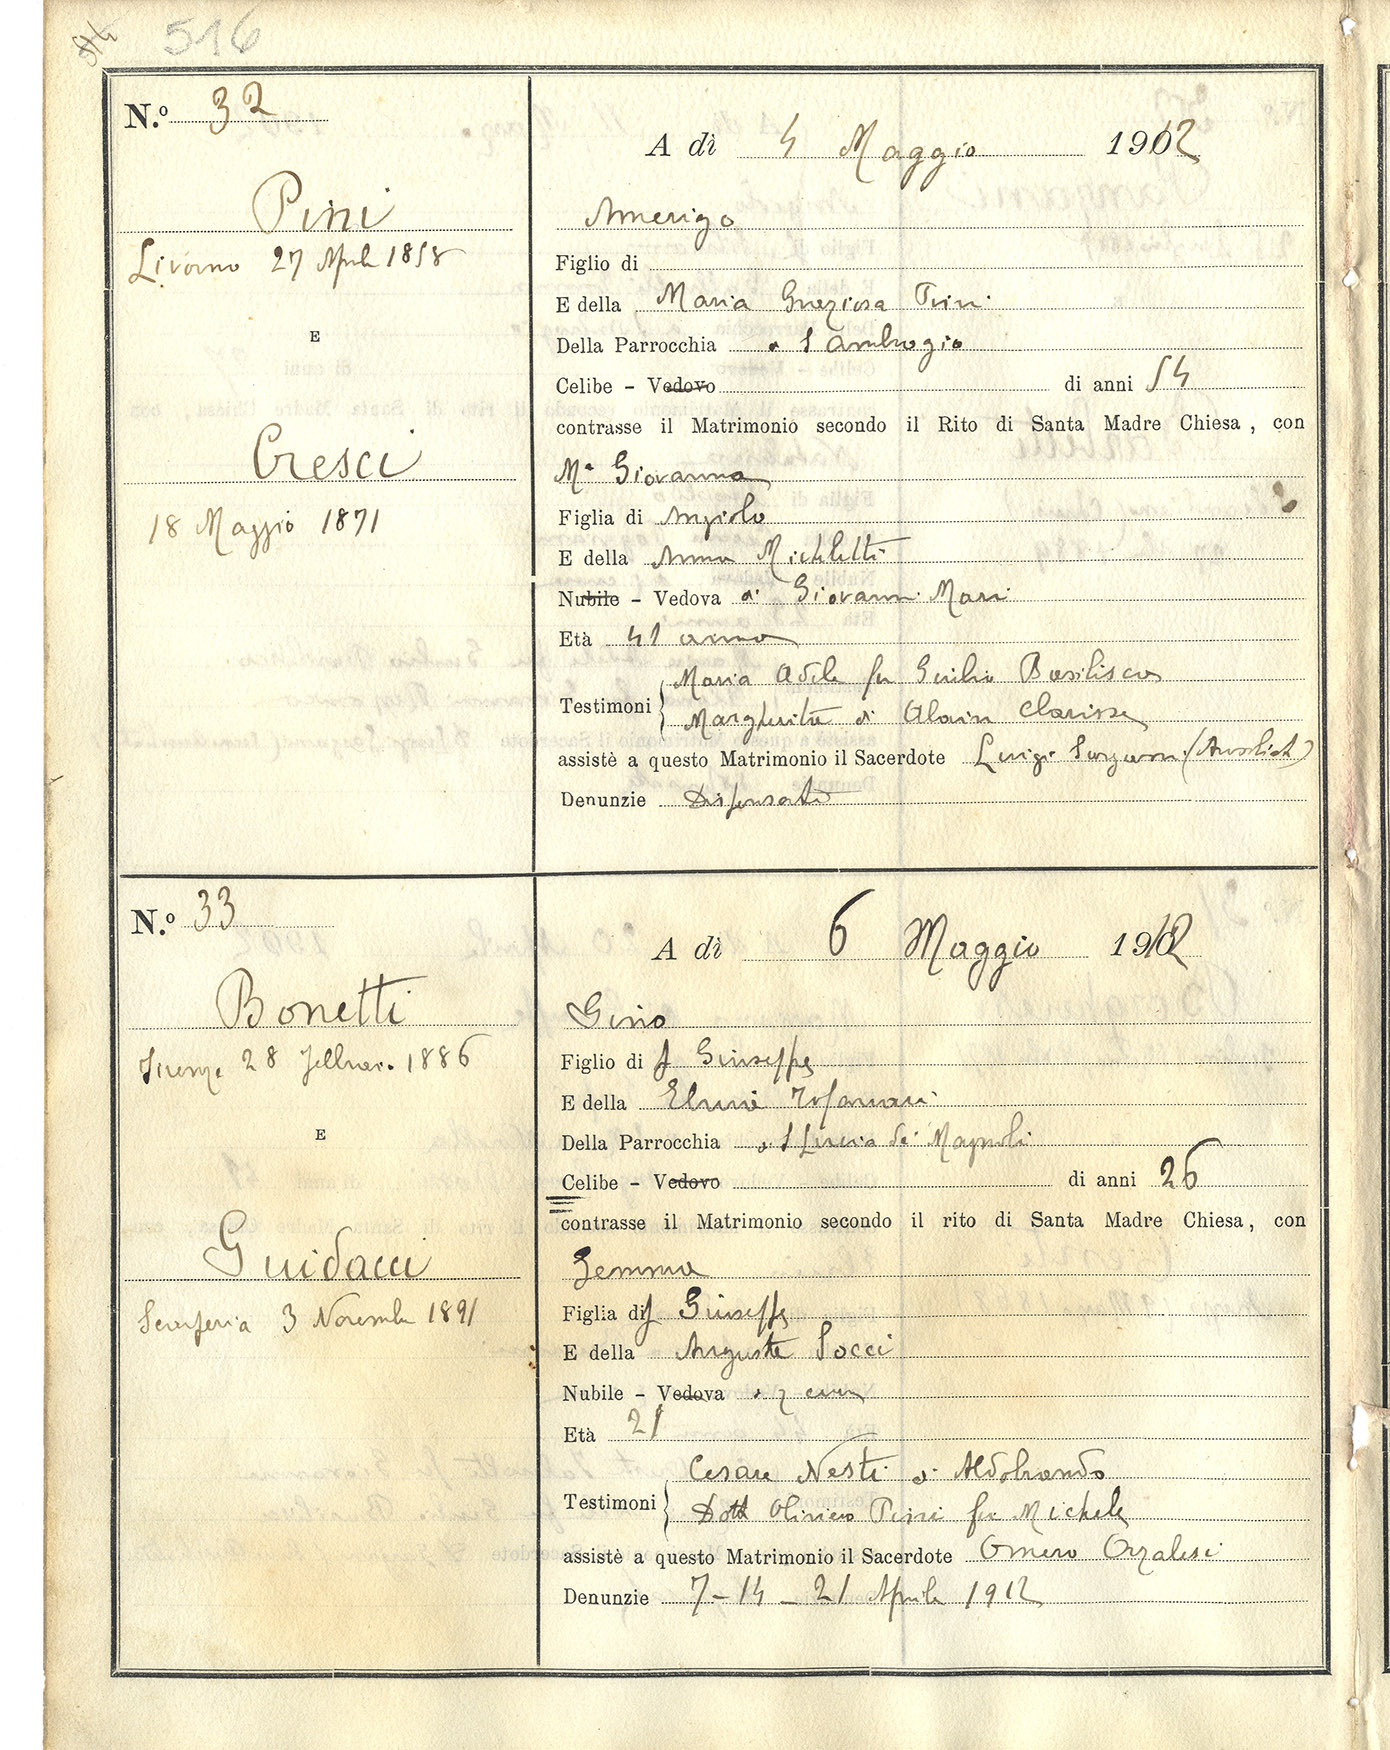 516
N.º 32
A dì 4 Maggio 1912
Pini
Livorno 27 Aprile 1858
E
Cresci
18 Maggio 1871
Amerigo
Figlio di
E della Maria Graziosa Pini
Della Parrocchia S Ambrogio
Celibe - Vedovo di anni 54
contrasse il Matrimonio secondo il Rito di Santa Madre Chiesa, con
Mª Giovanna
Figlia di Angiolo
E della Anna Micheletti
Nubile - Vedova di Giovanni Masi
Età 41 anno
Testimoni Maria Adele fu Giulio Basilisco
Margherita di Clarisse
assistè a questo Matrimonio il Sacerdote Luigi
Denunzie Dispensati
N.º 33
A dì 6 Maggio 1912
Bonetti
Firenze 28 Febbraio 1886
E
Guidacci
Scarperia 3 Novembre 1891
Gino
Figlio di f Giuseppe
E della
Della Parrocchia S Lucia de' Magnoli
Celibe - Vedovo di anni 26
contrasse il Matrimonio secondo il rito di Santa Madre Chiesa, con
Gemma
Figlia di f Giuseppe
E della Augusta Socci
Nubile - Vedova
Età 21
Testimoni Cesare Nesti di Aldobrando
Dott Oliviero Pini fu Michele
assistè a questo Matrimonio il Sacerdote Omero Orzalesi
Denunzie 7 - 14 - 21 Aprile 1912